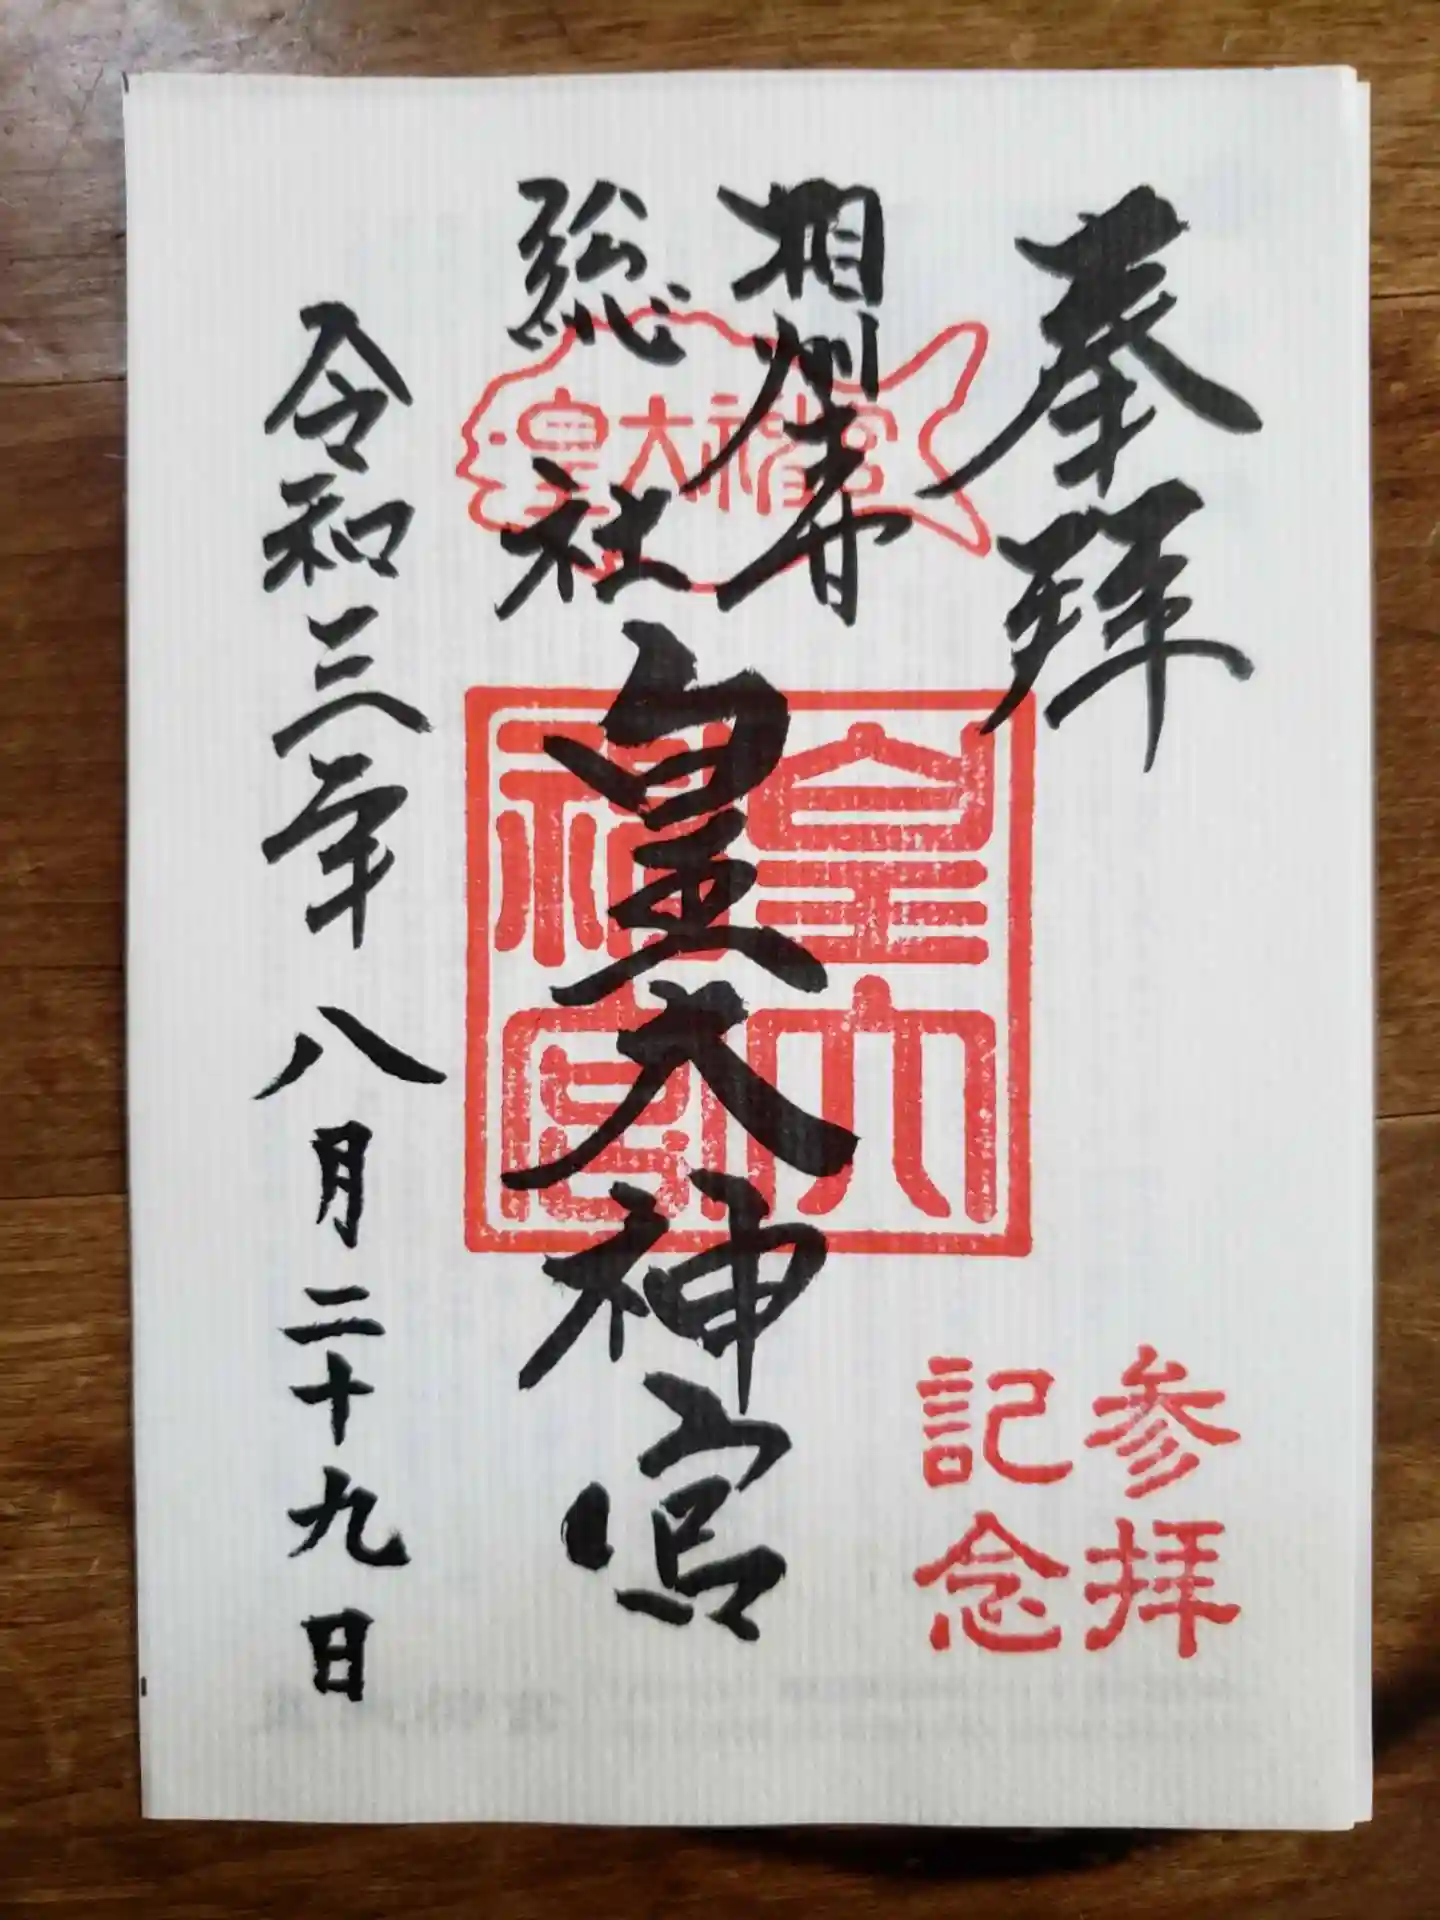 奉拜
相州土甘
総社
皇大神宮
皇大神宮
皇大
神宮
令和三年八月二十九日
参拝
記念